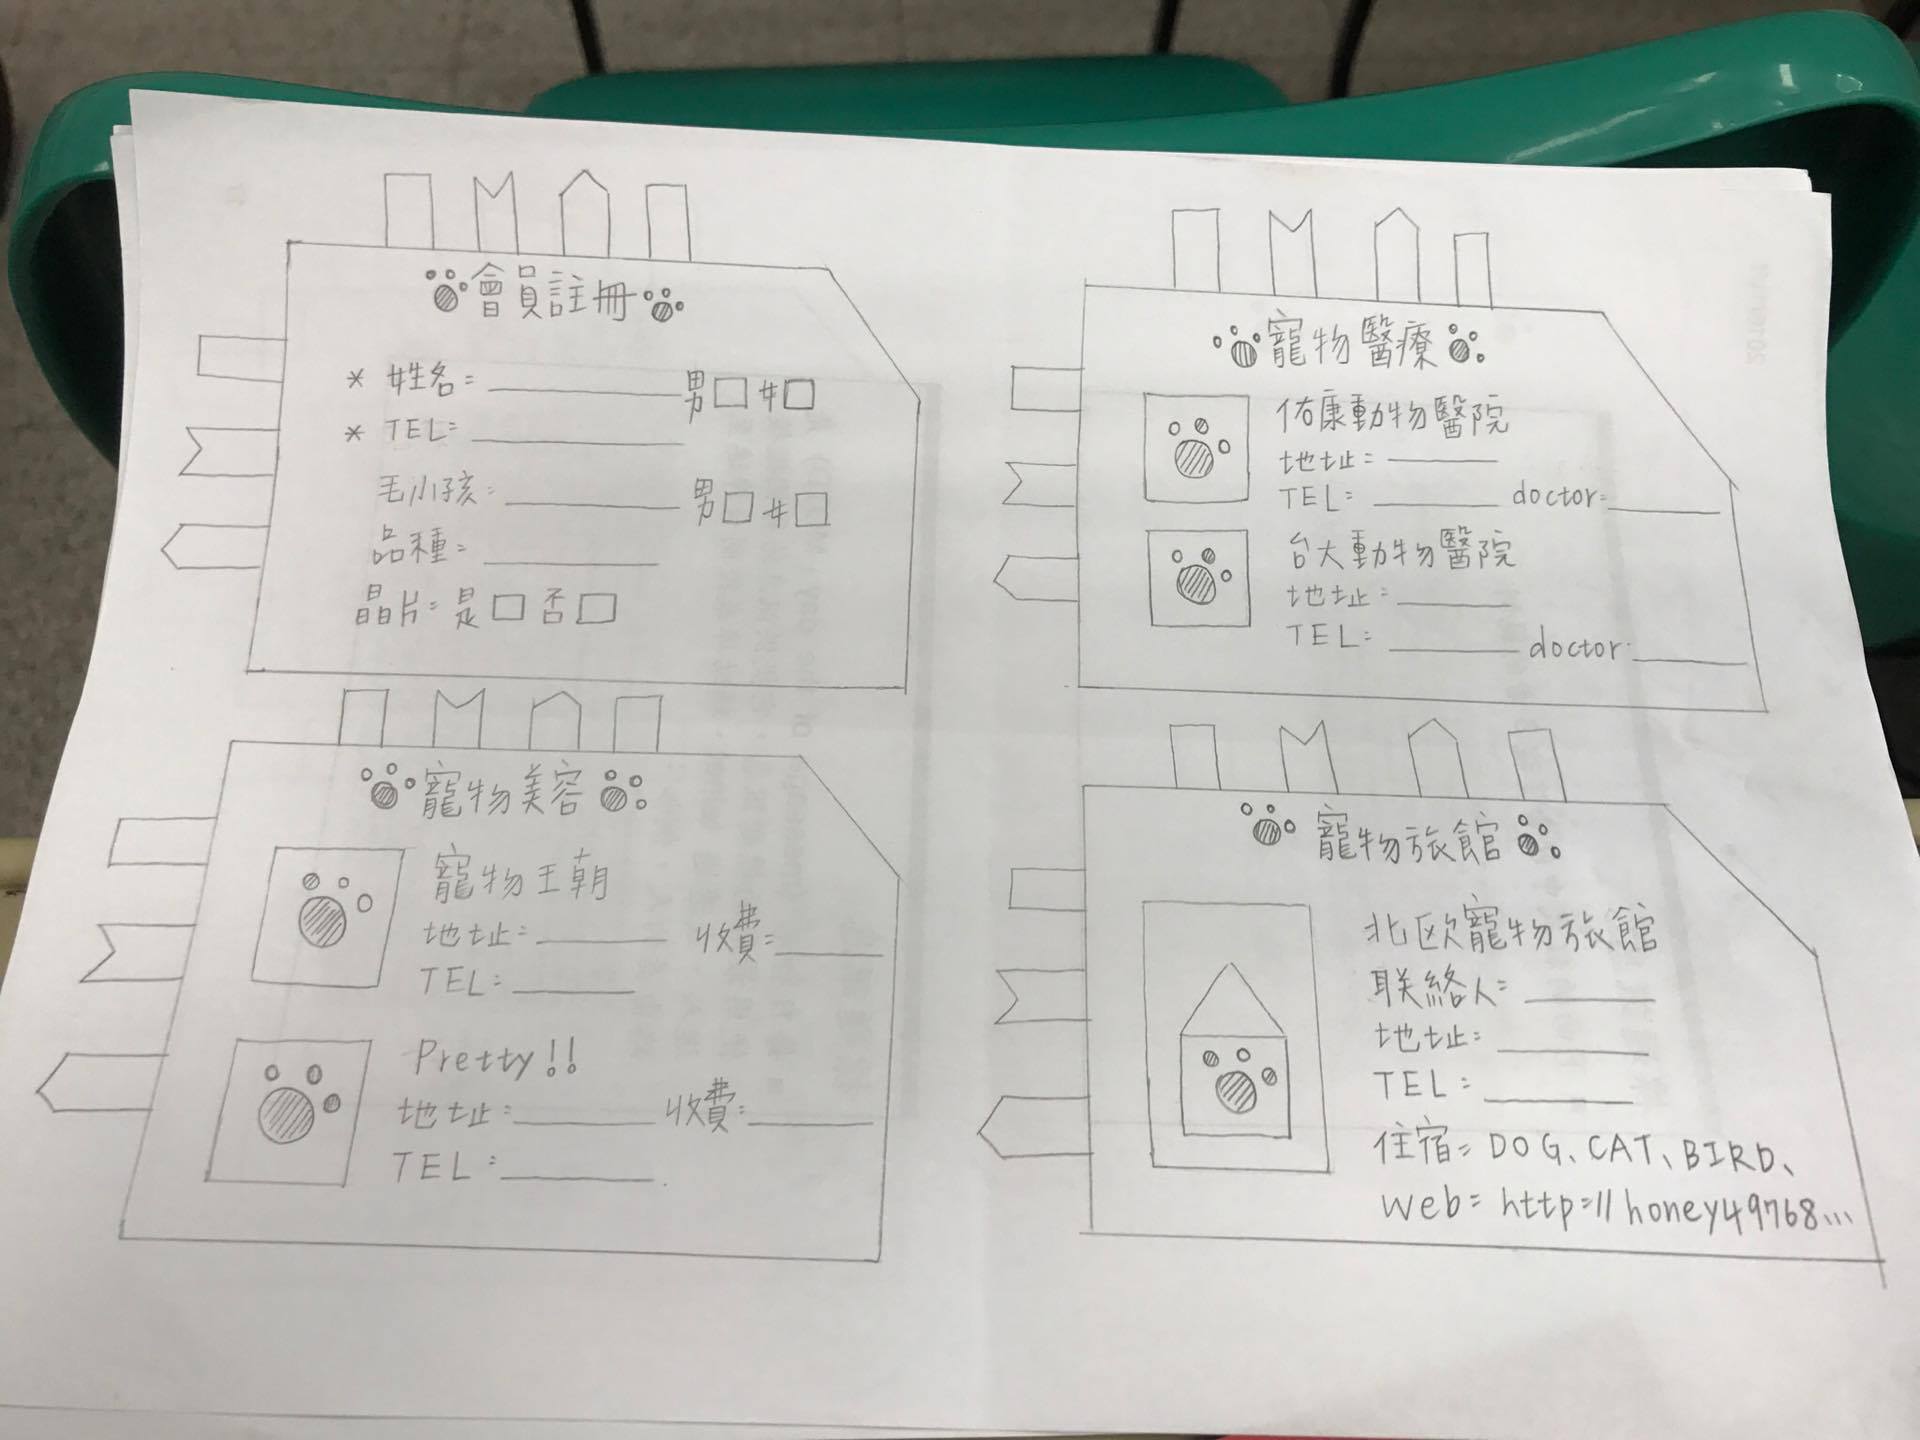 會員註冊
* 姓名= 男□ 女□
* TEL=
毛小孩= 男□ 女□
品種=
晶片= 是□ 否□
寵物醫療
佑康動物醫院
地址=
TEL= doctor=
台大動物醫院
地址=
TEL= doctor=
寵物美容
寵物王朝
地址= 收費=
TEL=
Pretty!!
地址= 收費=
TEL=
寵物旅館
北欧寵物旅館
联絡人=
地址=
TEL=
住宿= DOG、CAT、BIRD、
Web= http=//honey49768...